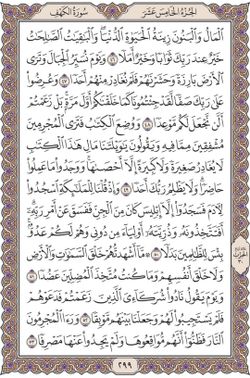 سُورَةُ الكَهْفِ الجُزْءُ الخَامِسَ عَشَرَ
ٱلْمَالُ وَٱلْبَنُونَ زِينَةُ ٱلْحَيَوٰةِ ٱلدُّنْيَا وَٱلْبَٰقِيَٰتُ ٱلصَّٰلِحَٰتُ
خَيْرٌ عِندَ رَبِّكَ ثَوَابًا وَخَيْرٌ أَمَلًا ٤٦ وَيَوْمَ نُسَيِّرُ ٱلْجِبَالَ وَتَرَى
ٱلْأَرْضَ بَارِزَةً وَحَشَرْنَٰهُمْ فَلَمْ نُغَادِرْ مِنْهُمْ أَحَدًا ٤٧ وَعُرِضُوا۟
عَلَىٰ رَبِّكَ صَفًّا لَّقَدْ جِئْتُمُونَا كَمَا خَلَقْنَٰكُمْ أَوَّلَ مَرَّةٍۭ بَلْ زَعَمْتُمْ
أَلَّن نَّجْعَلَ لَكُم مَّوْعِدًا ٤٨ وَوُضِعَ ٱلْكِتَٰبُ فَتَرَى ٱلْمُجْرِمِينَ
مُشْفِقِينَ مِمَّا فِيهِ وَيَقُولُونَ يَٰوَيْلَتَنَا مَالِ هَٰذَا ٱلْكِتَٰبِ
لَا يُغَادِرُ صَغِيرَةً وَلَا كَبِيرَةً إِلَّآ أَحْصَىٰهَا وَوَجَدُوا۟ مَا عَمِلُوا۟
حَاضِرًا وَلَا يَظْلِمُ رَبُّكَ أَحَدًا ٤٩ وَإِذْ قُلْنَا لِلْمَلَٰٓئِكَةِ ٱسْجُدُوا۟
لِءَادَمَ فَسَجَدُوٓا۟ إِلَّآ إِبْلِيسَ كَانَ مِنَ ٱلْجِنِّ فَفَسَقَ عَنْ أَمْرِ رَبِّهِۦٓ
أَفَتَتَّخِذُونَهُۥ وَذُرِّيَّتَهُۥٓ أَوْلِيَآءَ مِن دُونِى وَهُمْ لَكُمْ عَدُوٌّۢ
بِئْسَ لِلظَّٰلِمِينَ بَدَلًا ٥٠ مَّآ أَشْهَدتُّهُمْ خَلْقَ ٱلسَّمَٰوَٰتِ وَٱلْأَرْضِ
وَلَا خَلْقَ أَنفُسِهِمْ وَمَا كُنتُ مُتَّخِذَ ٱلْمُضِلِّينَ عَضُدًا ٥١
وَيَوْمَ يَقُولُ نَادُوا۟ شُرَكَآءِىَ ٱلَّذِينَ زَعَمْتُمْ فَدَعَوْهُمْ
فَلَمْ يَسْتَجِيبُوا۟ لَهُمْ وَجَعَلْنَا بَيْنَهُم مَّوْبِقًا ٥٢ وَرَءَا ٱلْمُجْرِمُونَ
ٱلنَّارَ فَظَنُّوٓا۟ أَنَّهُم مُّوَاقِعُوهَا وَلَمْ يَجِدُوا۟ عَنْهَا مَصْرِفًا ٥٣
٢٩٩